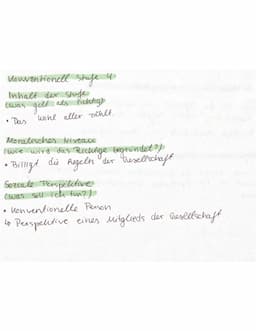 Konventionell Stufe 4
Inhalt der Stufe
(was gilt als richtig)
• Das wohl aller zählt.
Moralisches Niveau
(wie wird das Richtige begründet?)
• Billigt die Regeln der Gesellschaft
Soziale Perspektive
(was soll ich tun?)
• Konventionelle Person
↳ Perspektive eines Mitglieds der Gesellschaft